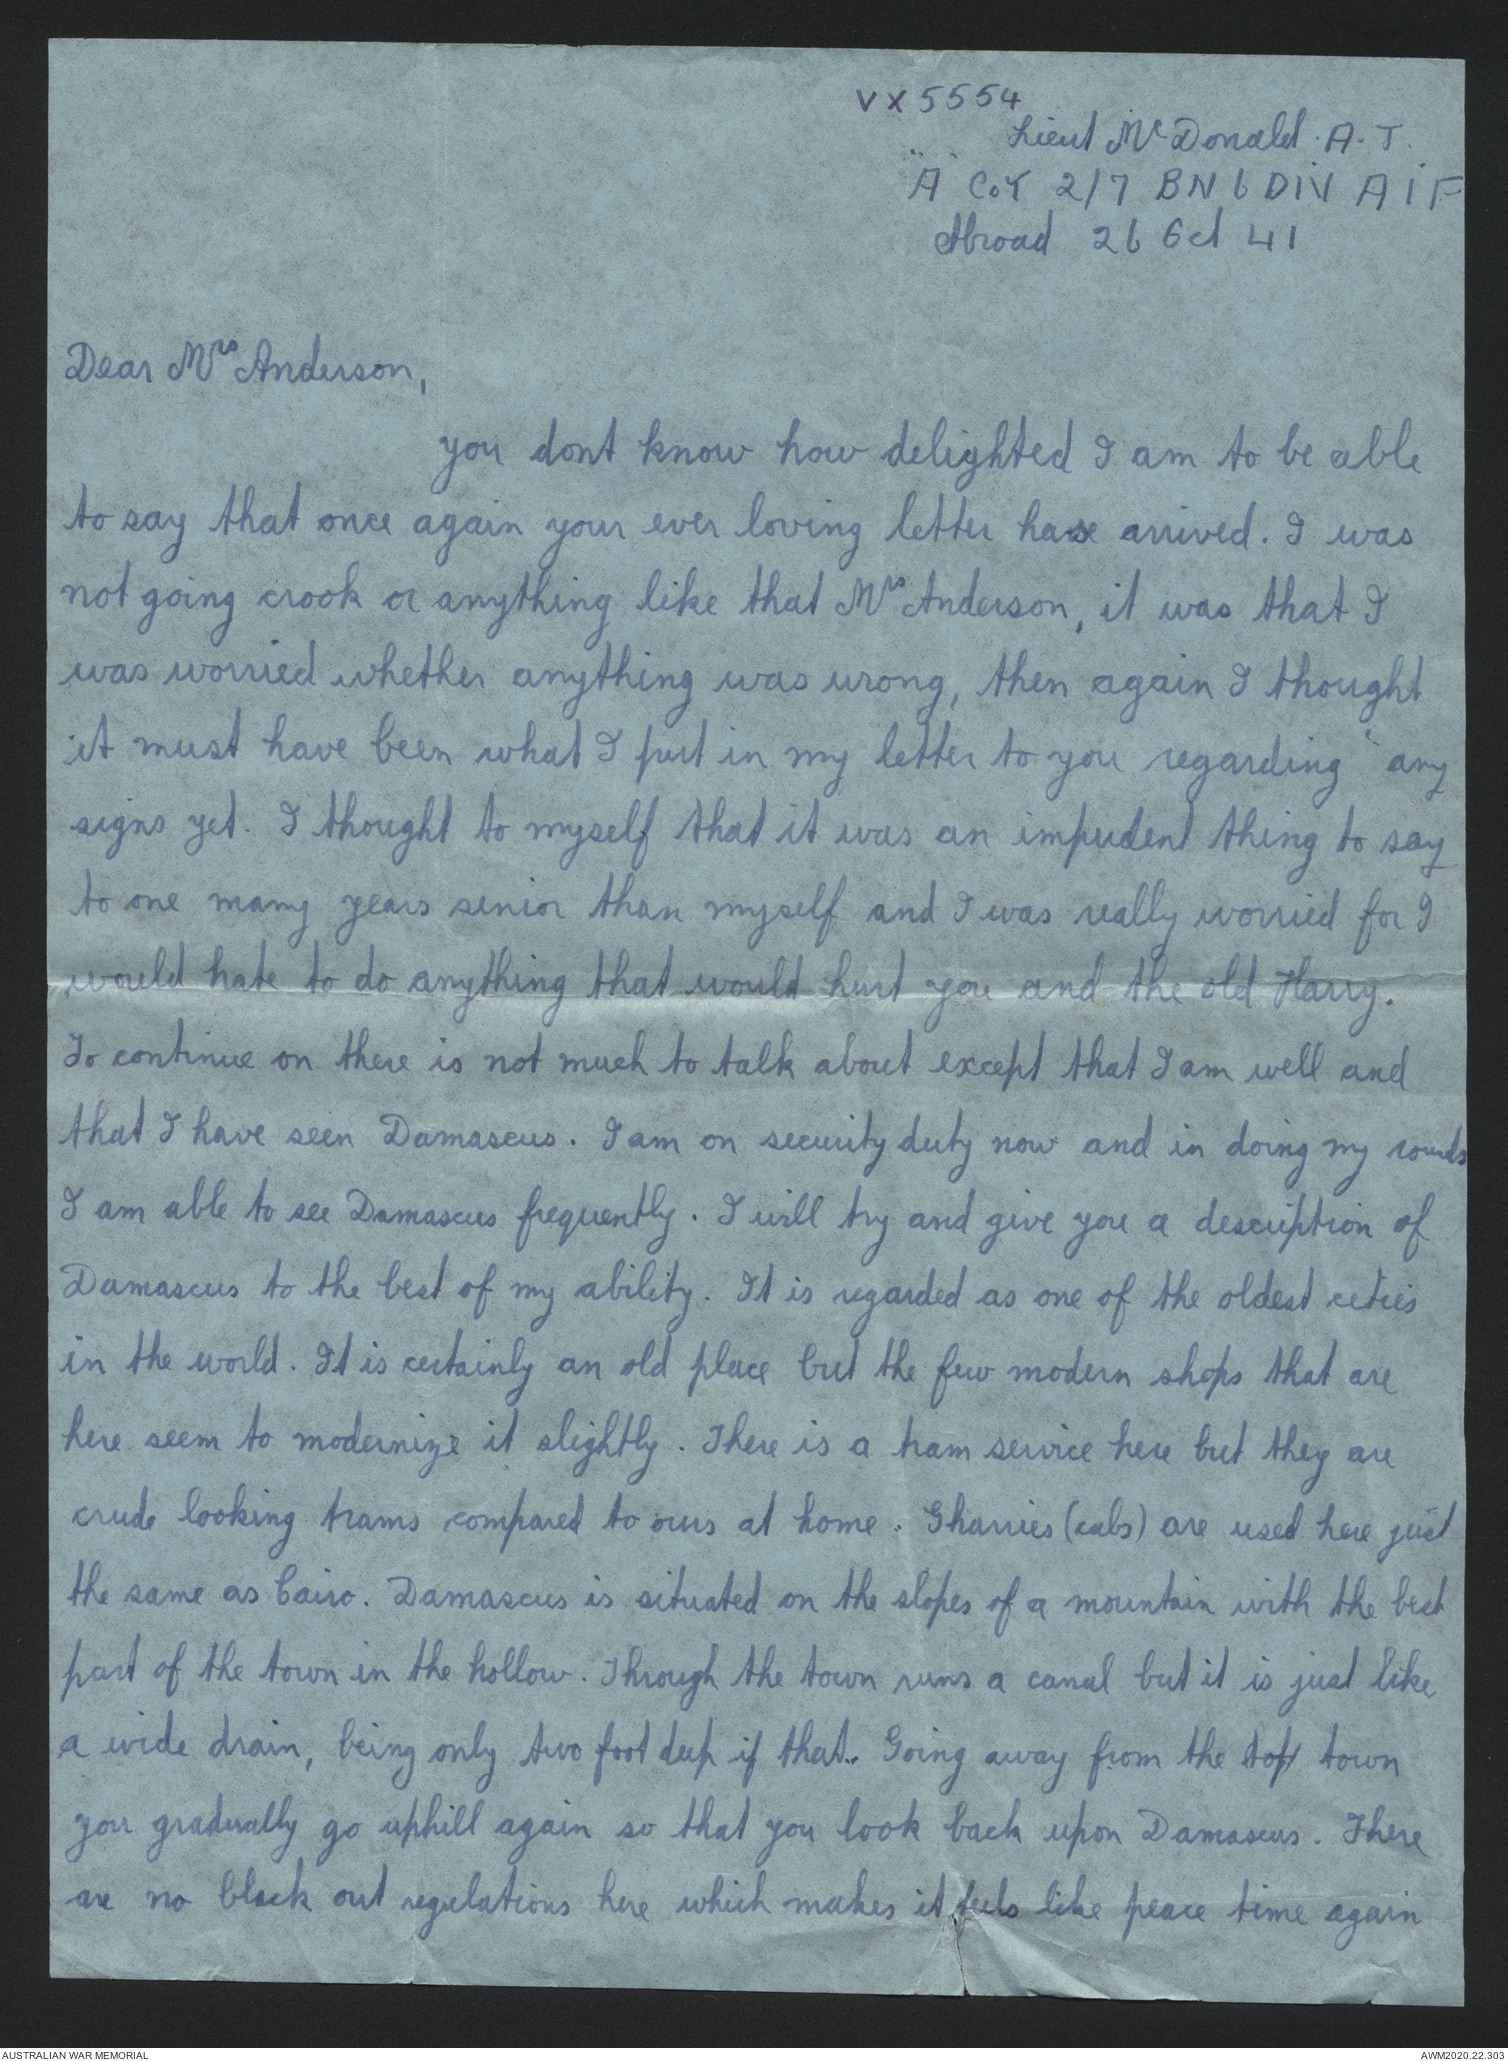 VX5554
Lieut McDonald. A. J.
"A" Coy 2/7 BN 6 DIV A I F
Abroad 26 Oct 41
Dear Mrs Anderson,
you dont know how delighted I am to be able
to say that once again your ever loving letter have arrived. I was
not going crook or anything like that Mrs Anderson, it was that I
was worried whether anything was wrong, then again I thought
it must have been what I put in my letter to you regarding "any
signs yet. I thought to myself that it was an impudent thing to say
to one many years senior than myself and I was really worried for I
would hate to do anything that would hurt you and the old Harry.
To continue on there is not much to talk about except that I am well and
that I have seen Damascus. I am on security duty now and in doing my rounds
I am able to see Damascus frequently. I will try and give you a description of
Damascus to the best of my ability. It is regarded as one of the oldest ceties
in the world. It is certainly an old place but the few modern shops that are
here seem to modernize it slightly. There is a tram service here but they are
crude looking trams compared to ours at home. Gharries (cabs) are used here just
the same as Cairo. Damascus is situated on the slopes of a mountain with the best
part of the town in the hollow. Through the town runs a canal but it is just like
a wide drain, being only two foot deep if that. Going away from the top town
you gradually go uphill again so that you look back upon Damascus. There
are no black out regulations here which makes it feels like peace time again
AUSTRALIAN WAR MEMORIAL
AWM2020.22.303